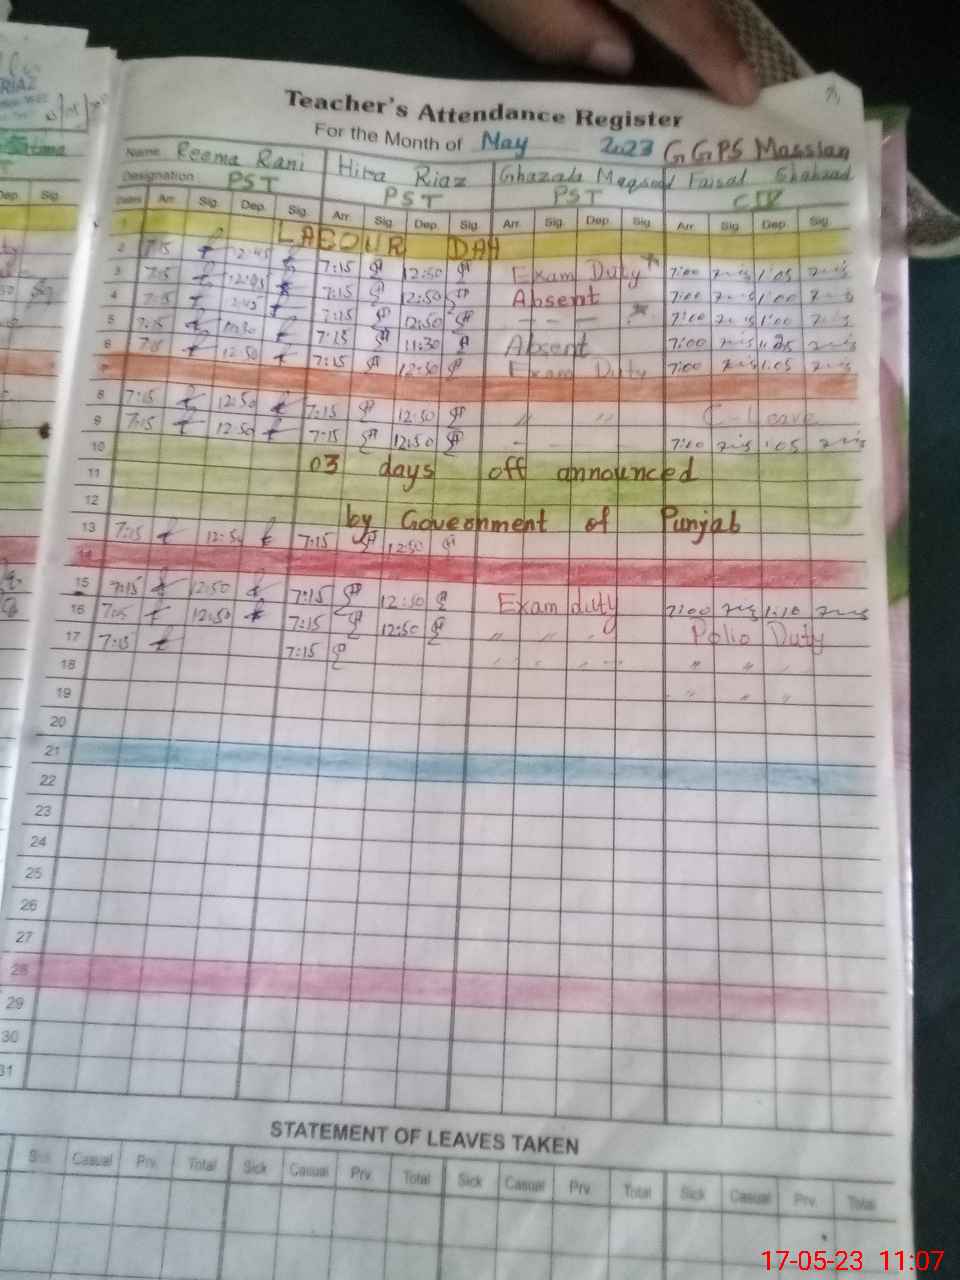 RIAZ
Teacher's Attendance Register
For the Month of May 2023 GGPS Massian
Name Reema Rani Hira Riaz Ghazala Maqsood Faisal Shahzad
Designation PST PST PST C IV
Dates Arr. Sig. Dep. Sig. Arr. Sig. Dep. Sig. Arr. Sig. Dep. Sig. Arr. Sig. Dep. Sig.
Dep. Sig.
1 LABOUR DAY
2 7:15 12:45 7:15 12:50 Exam Duty 7:00 1:05
3 7:15 12:45 7:15 12:50 Absent 7:00 1:00
4 7:15 12:45 7:15 12:50 — — — 7:00 1:00
5 7:15 11:30 7:15 11:30 Absent 7:00 11:35
6 7:15 12:50 7:15 12:50 Exam Duty 7:00 1:05
7
8 7:15 12:50 7:15 12:50 " " C-Leave
9 7:15 12:50 7:15 12:50 - - - 7:00 1:05
10
11 03 days off announced
12
by Goveonment of Punjab
13 7:15 12:50 7:15 12:50
14
15 7:15 12:50 7:15 12:50 Exam duty 7:00 1:10
16 7:15 12:50 7:15 12:50 " " " Polio Duty
17 7:15 7:15 " " " " " "
18 " " "
19
20
21
22
23
24
25
26
27
28
29
30
31
STATEMENT OF LEAVES TAKEN
Sick Casual Prv. Total Sick Casual Prv. Total Sick Casual Prv. Total Sick Casual Prv. Total
17-05-23 11:07